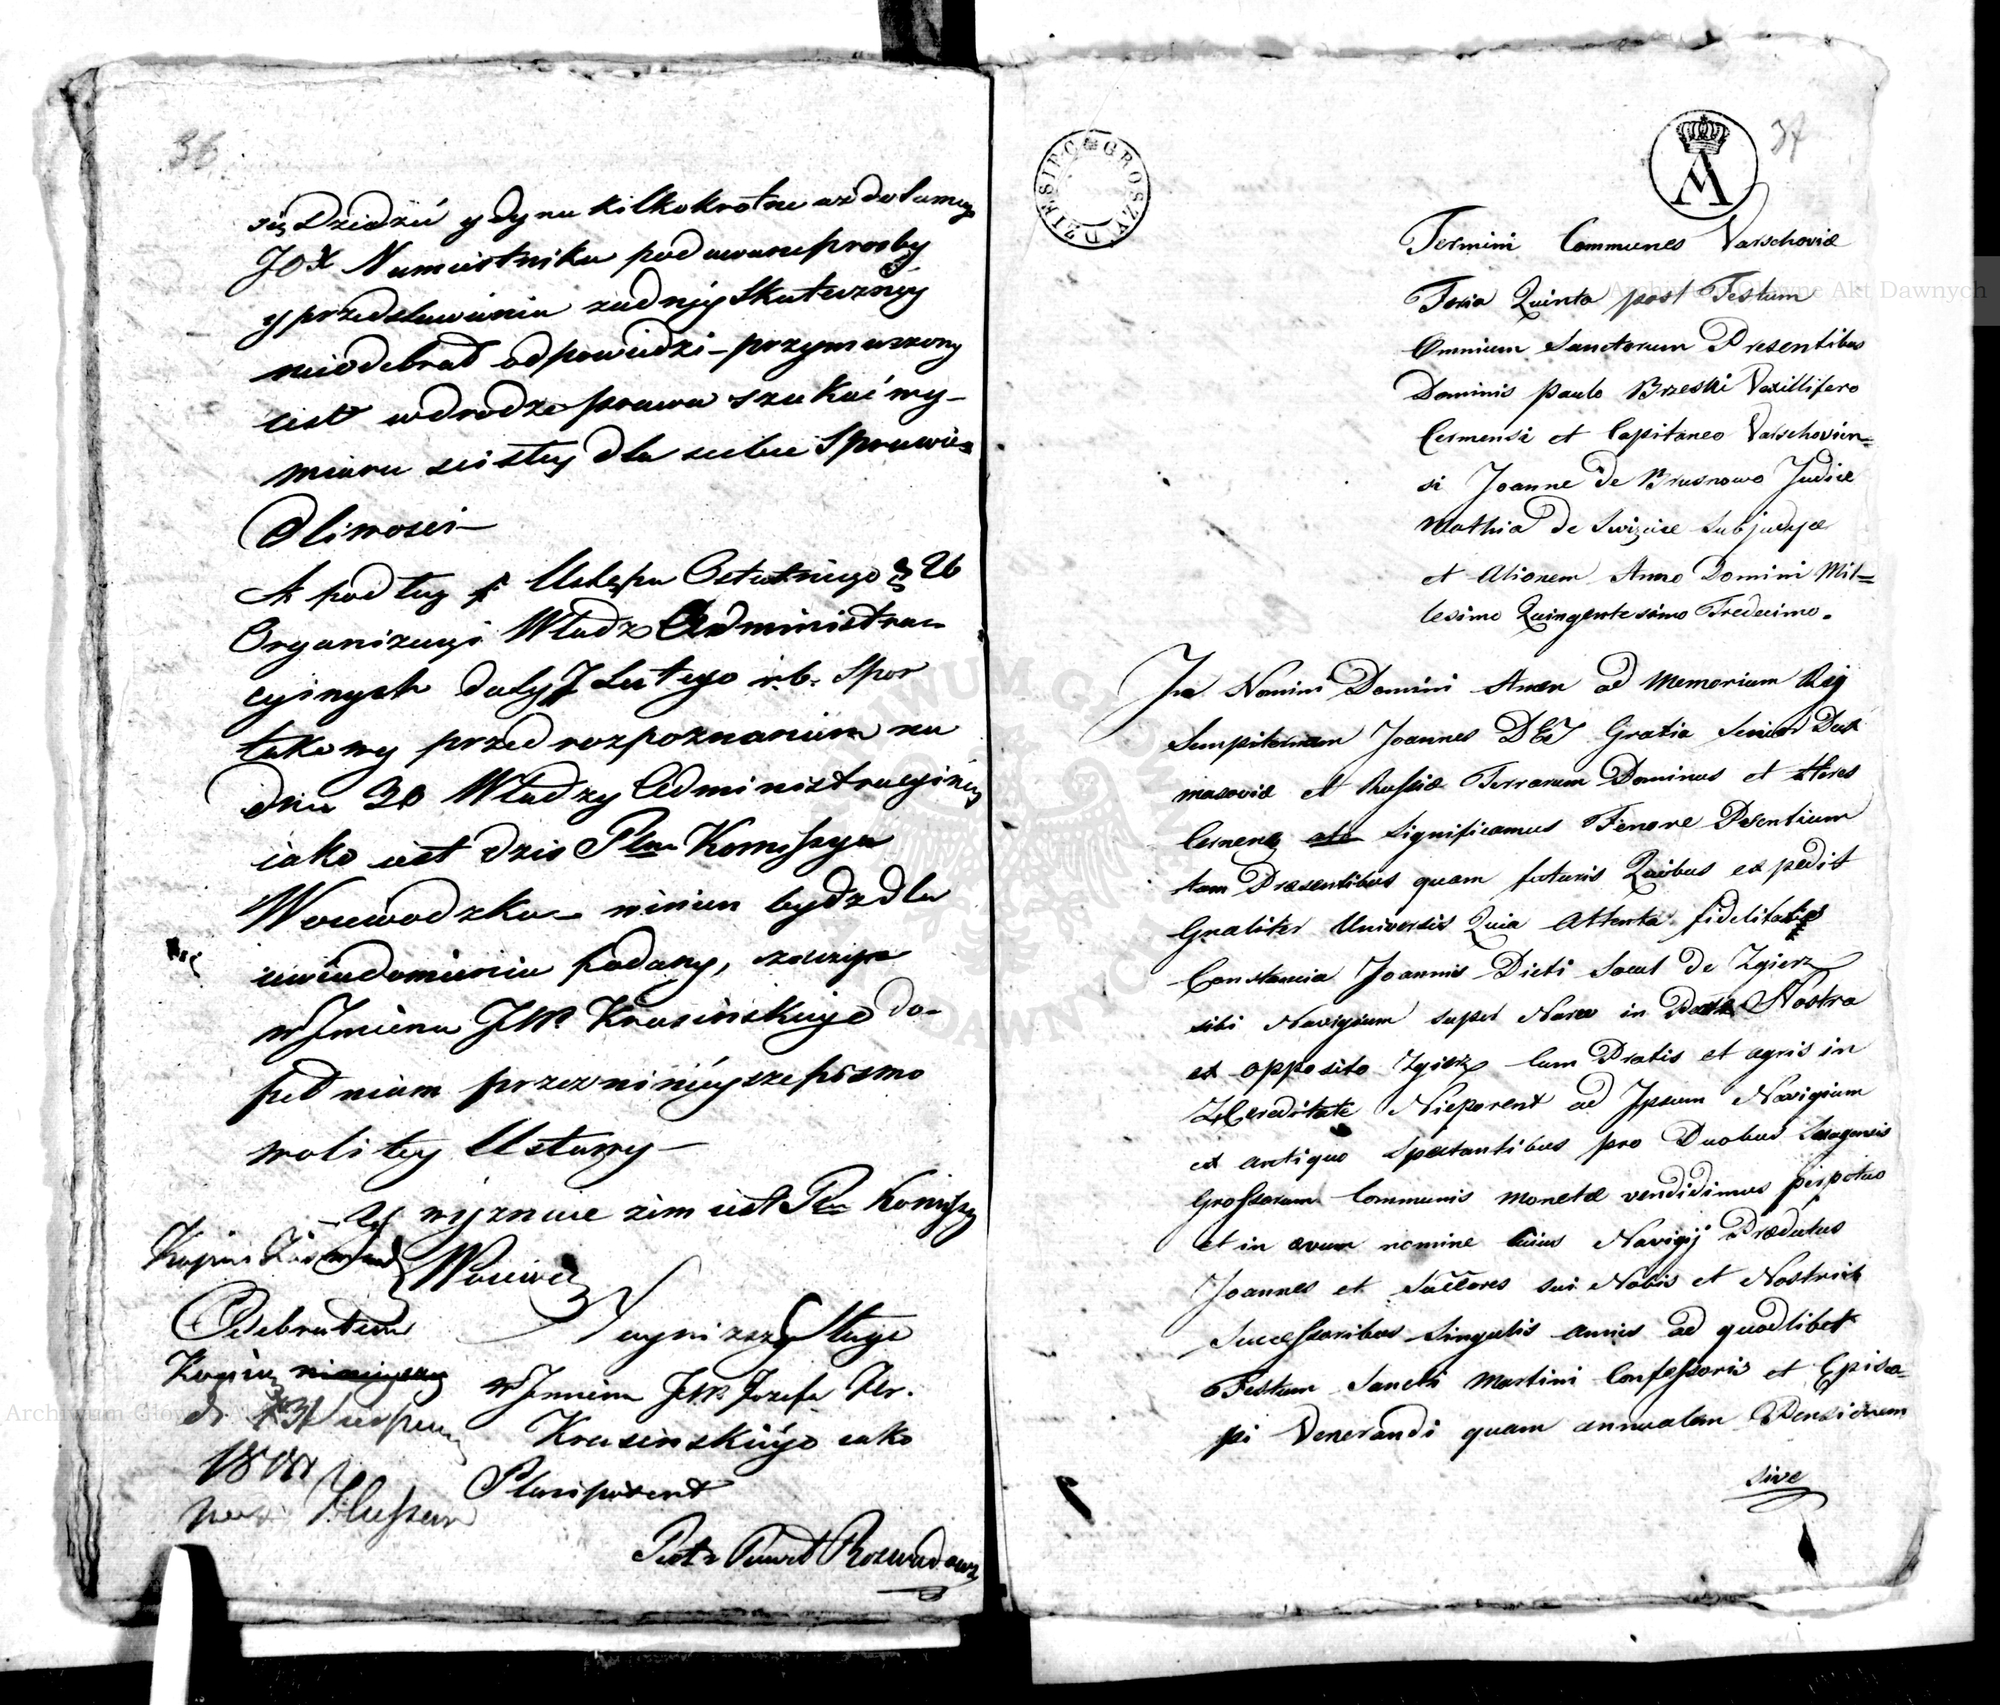 36
się Dziedzić y dy na kilkokrotne aż do samego
JOX Namiestnika podawane prosby
y przedstawienia żadney Skuteczney
nieodebrał odpowiedzi – przymuszony
iest w drodze prawa szukać wy-
miaru scisłey dla siebie Sprawie-
dliwosci –
A podług Ustępu Ostatniego § 26
Organizacyi Władz Administra-
cyinych daty 7 Lutego r. b. Spor
takowy przed rozpoznaniem na
dniu 30 Władzy Administracyiney
iako iest dziś Komissya
Woiewodzka – winien bydź dla
uwiadomienia podany, zaczym
w Jmieniu JW Krasinskiego do-
pełniam przez ninieysze pismo
woli tey Ustawy –
Kommissy
Woiew
Odebrałem
Kopią ninieyszey
d
18
Nayniższy Sługa
w Jmieniu JW Jozefa Hr.
Krasinskiego iako
Plenipotent
Piotr Paweł Rozwadowski
DZIESIĘC GROSZY
37
Termini Communes Varschoviæ
Feria Quinta post Festum
Omnium Sanctorum Presentibus
Dominis Paulo Brzeski Vexillifero
Cernensi et Capitaneo Varschovien=
si Joanne de Brusnowo Judice
Mathia de Swizice Subjudice
et Alionem Anno Domini Mil=
lesimo Quingentesimo Tredecimo.
In Nomini Domini Amen ad Memoriam Rej
Sempiternam Joannes DEI Gratia Senior Dux
Masoviæ et Russiæ Terrarum Dominus et Heres
Cernens significamus Tenore Psentium
tam Præsentibus quam futuris Quibus expedit
Gnaliter Universis Quia Attenta fidelitatis
Constancia Joannis Dicti Socul de Zgierz
sibi Navigium super Narew in Parte Nostra
ex opposito Zgierz Cum Pratis et agris in
Hæreditate Nieporent ad Ipsum Navigium
ex antiquo Spectantibus pro Duobus Sexagenis
Grossorum Communis Monetæ vendidimus perpetuo
et in ævum nomine Cuius Navigij Prædictus
Joannes et Succores sui Nobis et Nostris
Successoribus Singulis Annis ad quodlibet
Festum Sancti Martini Confessoris et Episco-
pi Venerandi quam annualem Pensionem
sive